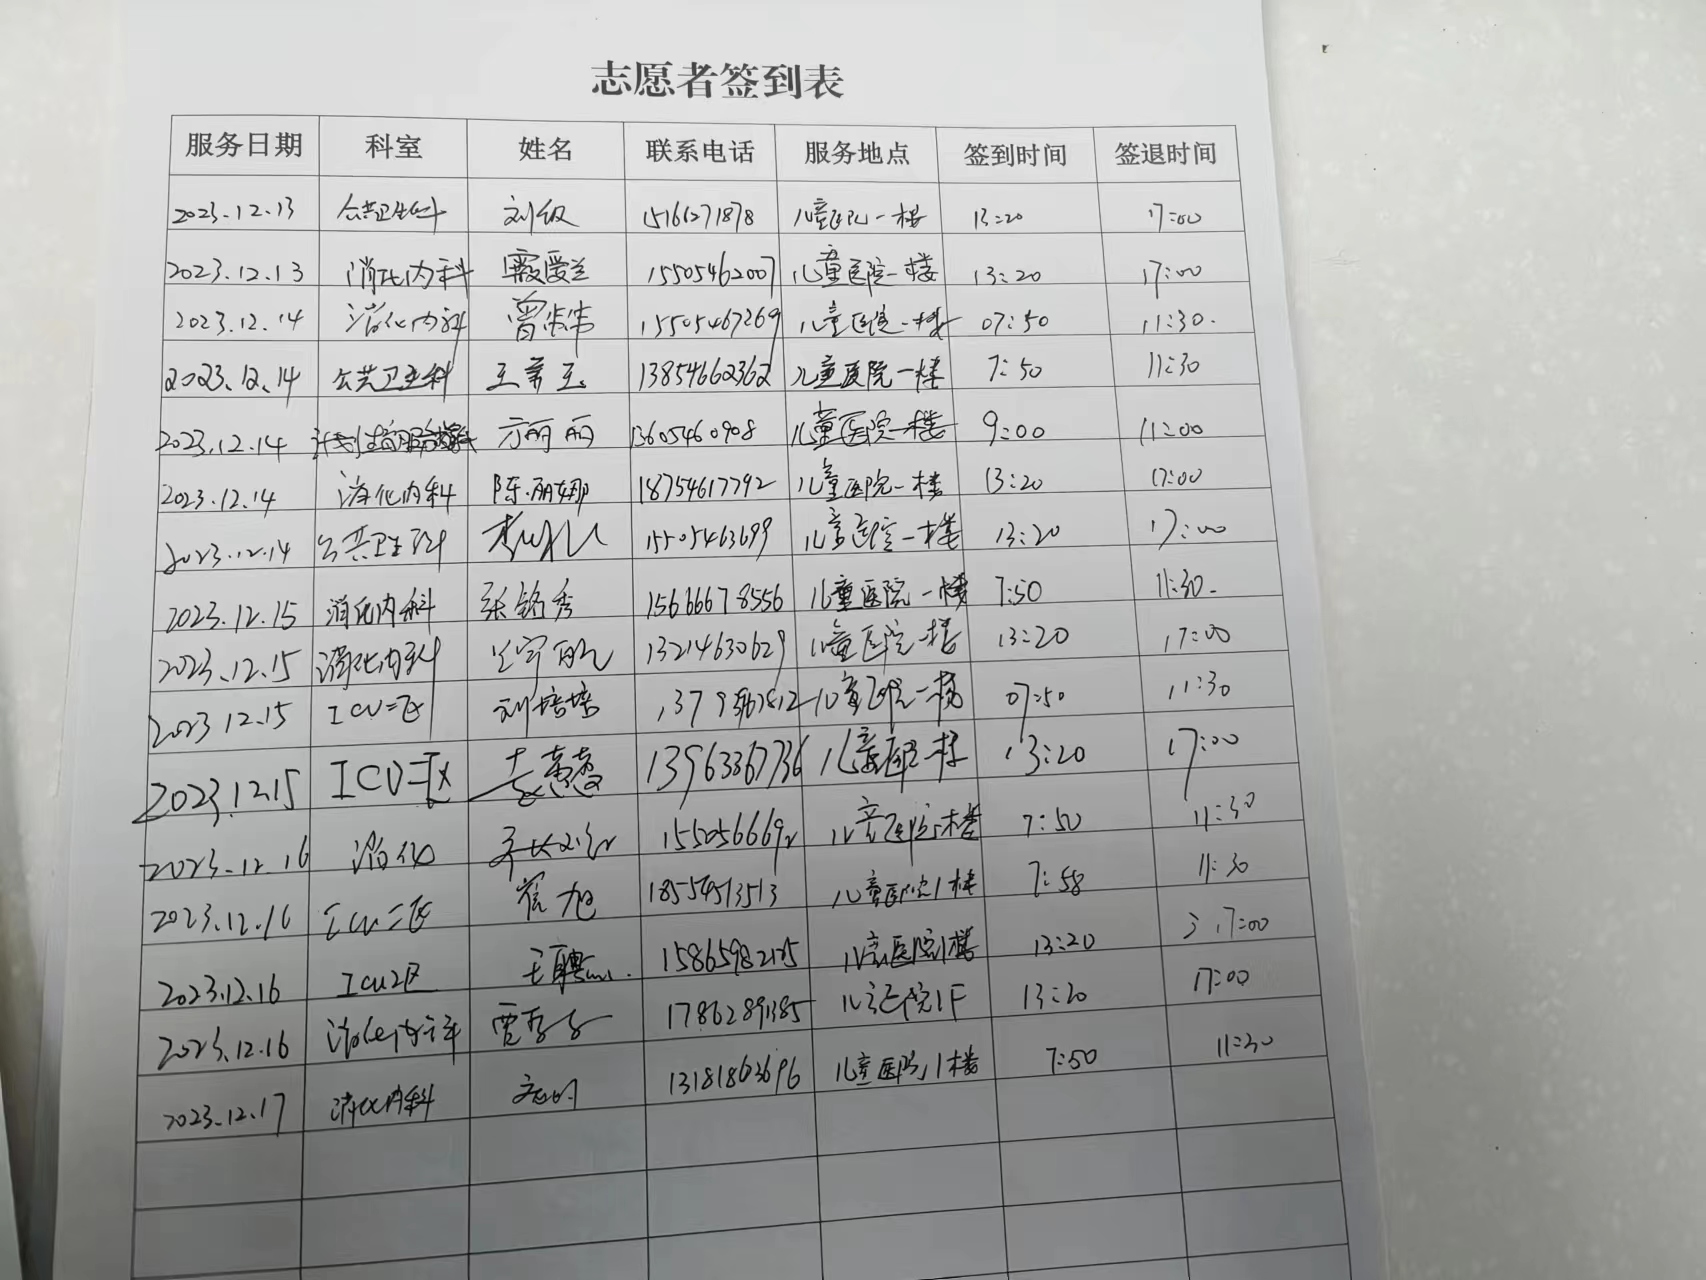 志愿者签到表
服务日期 科室 姓名 联系电话 服务地点 签到时间 签退时间
2023.12.13 公共卫生科 刘级 15166271878 儿童医院一楼 13:20 17:00
2023.12.13 消化内科 15505462007 儿童医院一楼 13:20 17:00
2023.12.14 消化内科 15505467269 儿童医院一楼 07:50 11:30.
2023.12.14 公共卫生科 13854662362 儿童医院一楼 7:50 11:30
2023.12.14 方丽丽 13605460908 儿童医院一楼 9:00 11:00
2023.12.14 消化内科 陈丽娜 18754617792 儿童医院一楼 13:20 17:00
2023.12.14 公共卫生科 15505463699 儿童医院一楼 13:20 17:00
2023.12.15 消化内科 张铭秀 15666678556 儿童医院一楼 7:50 11:30.
2023.12.15 消化内科 13214630629 儿童医院一楼 13:20 17:00
2023.12.15 ICU二区 刘培培 儿童医院一楼 07:50 11:30
2023.12.15 ICU二区 13963367736 儿童医院一楼 13:20 17:00
2023.12.16 消化 儿童医院一楼 7:50 11:30
2023.12.16 ICU二区 崔旭 18554513513 儿童医院1楼 7:58 11:30
2023.12.16 ICU2区 儿童医院1楼 13:20 17:00
2023.12.16 消化内科 17862891385 儿童医院1F 13:20 17:00
2023.12.17 消化内科 13181863696 儿童医院1楼 7:50 11:30